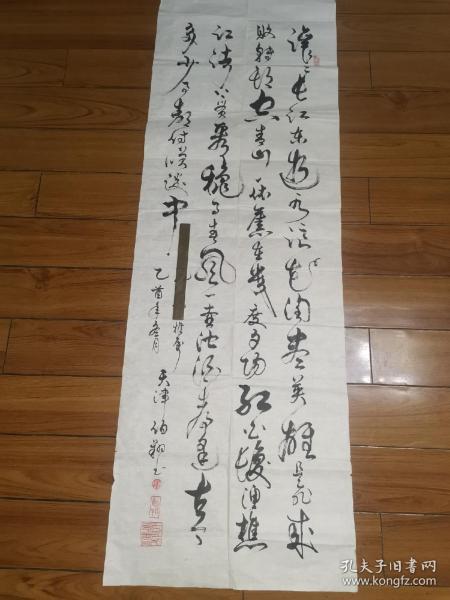 滚滚长江东逝水浪花淘尽英雄是非成
败转头空青山依旧在几度夕阳红白发渔樵
江渚上惯看秋月春风一壶浊酒喜相逢古今
多少事都付笑谈中
乙酉年冬月
天津伯翔书
孔夫子旧书网
www.kongfz.com